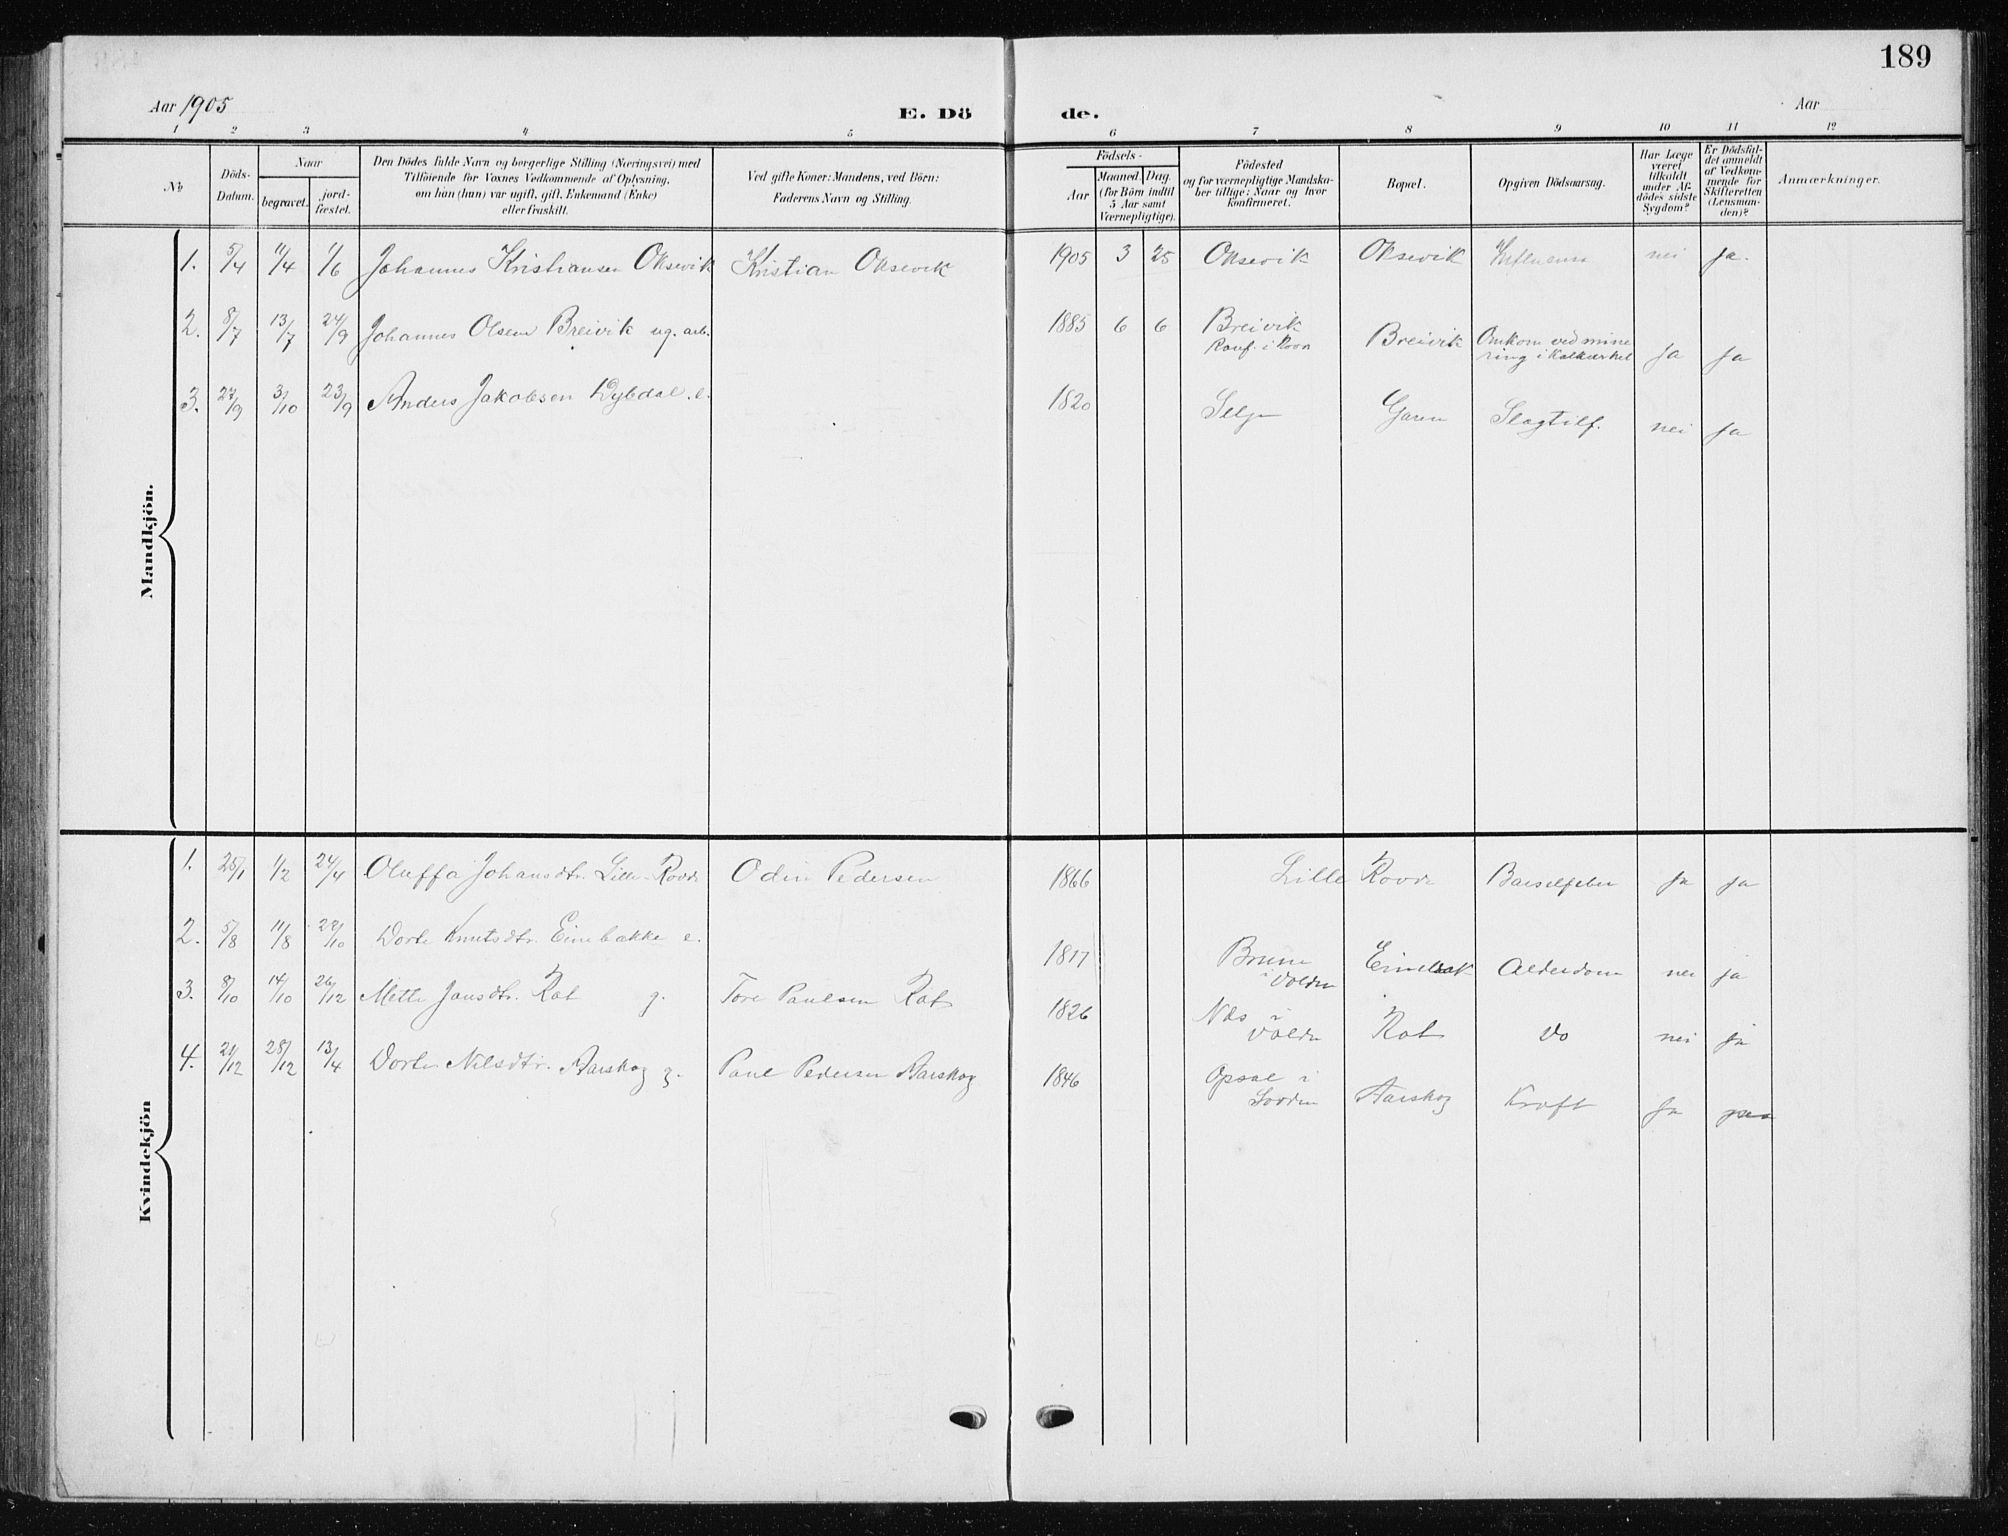 189
Aar 1905 E. Dö de. Aar
1 2 3 4 5 6 7 8 9 10 11 12
No
Döds-Datum.
Naar
begravet.
jord-fæstet.
Den Dödes fulde Navn og borgerlige Stilling (Næringsvei) med
Tilföiende for Voxnes Vedkommende af Oplysning,
om han (hun) var ugift, gift, Enkemand (Enke)
eller fraskilt.
Ved gifte Koner: Mandens, ved Börn:
Faderens Navn og Stilling.
Födsels-
Aar
Maaned. Dag.
(for Börn indtil
5 Aar samt
Værnepligtige).
Födested
og for værnepligtige Mandska-
ber tillige: Naar og hvor
konfirmeret.
Bopæl.
Opgiven Dödsaarsag.
Har Læge
været
tilkaldt
under Af-
dödes sidste
Sygdom?
Er Dödsfal-
det anmeldt
af Vedkom-
mende for
Skifteretten
(Lensman-
den)?
Anmærkninger.
Mandkjön.
1. 5/4 11/4 1/6 Johannes Kristiansen Oksevik Kristian Oksevik 1905 3 25 Oksevik Oksevik Influensa nei ja.
2. 8/7 13/7 24/9 Johannes Olsen Breivik ug. arb. 1885 6 6 Breivik Breivik Omkom ved mine
Konf. i ring i Kalkverket ja ja
3. 27/9 3/10 23/9 Anders Jakobsen Dybdal. e. 1820 Selje Garen Slagtilf. nei ja
Kvindekjön
1. 25/1 1/2 24/4 Oluffa Johansdtr. Lille-Rovde Odin Pedersen 1866 Lille Rovde Barselfeber ja ja
2. 5/8 11/8 22/10 Dorte Knutsdtr. Einebakke e. 1817 Brune Einebak Alderdom nei ja
i Volden
3. 8/10 14/10 26/12 Mette Jansdtr. Rot g. Tore Paulsen Rot 1826 Næs i Rot Do nei ja
Volden
4. 21/12 28/12 13/4 Dorte Nilsdtr. Aarskog g. Paul Pedersen Aarskog 1846 Opsal i Aarskog Kræft ja